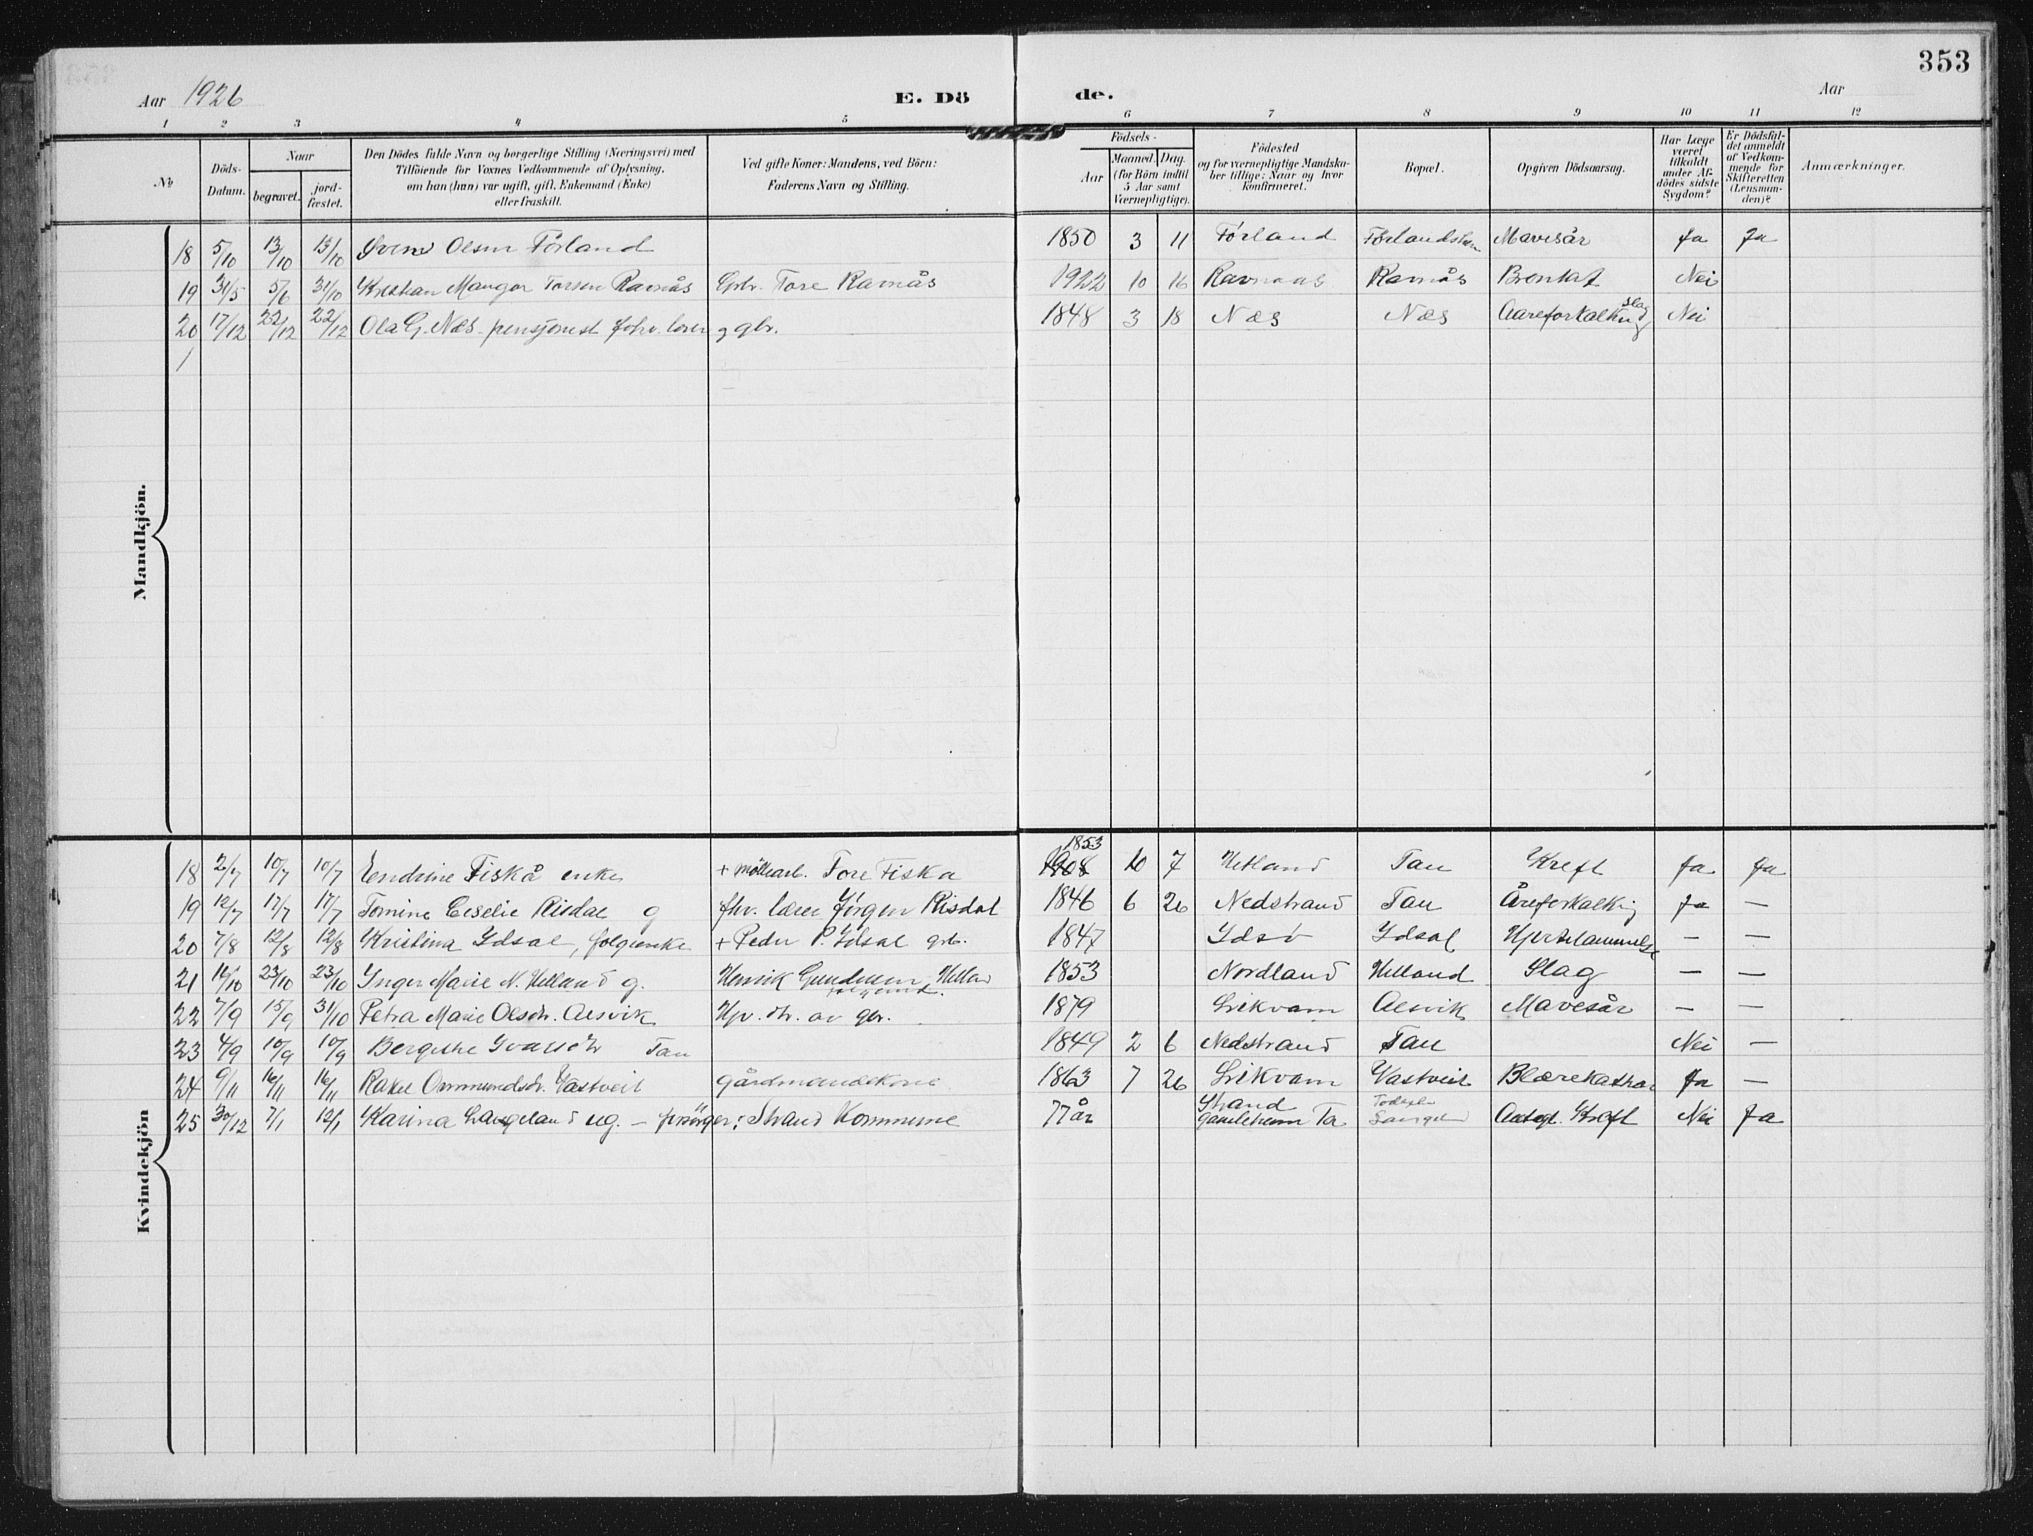 353
Aar 1926 E. Dö de. Aar
1 2 3 4 5 6 7 8 9 10 11 12
No
Döds-Datum.
Naar
begravet.
jord-fæstet.
Den Dödes fulde Navn og borgerlige Stilling (Næringsvei) med
Tilföiende for Voxnes Vedkommende af Oplysning,
om han (hun) var ugift, gift, Enkemand (Enke)
eller fraskilt.
Ved gifte Koner: Mandens, ved Börn:
Faderens Navn og Stilling.
Födsels-
Aar
Maaned. Dag.
(for Börn indtil
5 Aar samt
Værnepligtige).
Födested
og for værnepligtige Mandska-
ber tillige: Naar og hvor
Konfirmeret.
Bopæl.
Opgiven Dödsaarsag.
Har Læge
været
tilkaldt
under Af-
dödes sidste
Sygdom?
Er Dödsfal-
det anmeldt
af Vedkom-
mende for
Skifteretten
(Lensman-
den)?
Anmærkninger.
Mandkjön.
18 5/10 13/10 13/10 Svend Olsen Förland 1850 3 11 Förland Mavesår Ja Ja
19 31/5 5/6 31/10 Kristian Mangor Torsen Ravnås Gbr. Tore Ravnås 1922 10 16 Ravnaas Ravnås Bronkit Nei
20 17/12 22/12 22/12 Ola G. Næs pensjonist forhv. lærer og gbr. 1848 3 18 Næs Næs Aareforkalkning Slag Nei
1
Kvindekjön
18 2/7 10/7 10/7 Endrine Fiskå enke + møllearb. Tore Fiska 1853 1908 10 7 Hetland Tau Kreft Ja Ja
19 12/7 17/7 17/7 Tomine Ceselie Risdal g fhv. lærer Jørgen Risdal 1846 6 26 Nedstrand Tau Åreforkalkning Ja —
20 7/8 12/8 12/8 Kristina Idsal, folgeenke + Peder P. Idsal grb. 1847 Idsø Idsal Hjertelammelse — —
21 14/10 23/10 23/10 Inger Marie N. Helland g. Henrik Gundersen Helland 1853 Nordland Helland Slag — —
22 7/9 15/9 31/10 Petra Marie Olsdtr. Alsvik Hjv. dtr. av gbr. 1879 Lekvam Alsvik Mavesår — —
23 4/9 10/9 10/9 Bergithe Tau 1849 2 6 Nedstrand Tau Nei —
24 9/11 16/11 16/11 Rakel Ommundsdr. Vastveit gårdmandskone 1863 7 26 Lekvam Vastveit Blærekatar Ja —
25 30/12 7/1 12/1 Karina Langeland ug. — forsörger: Strand Kommune 77 år Strand gamlehem Ta Langeland Antagl. Kreft Nei Ja